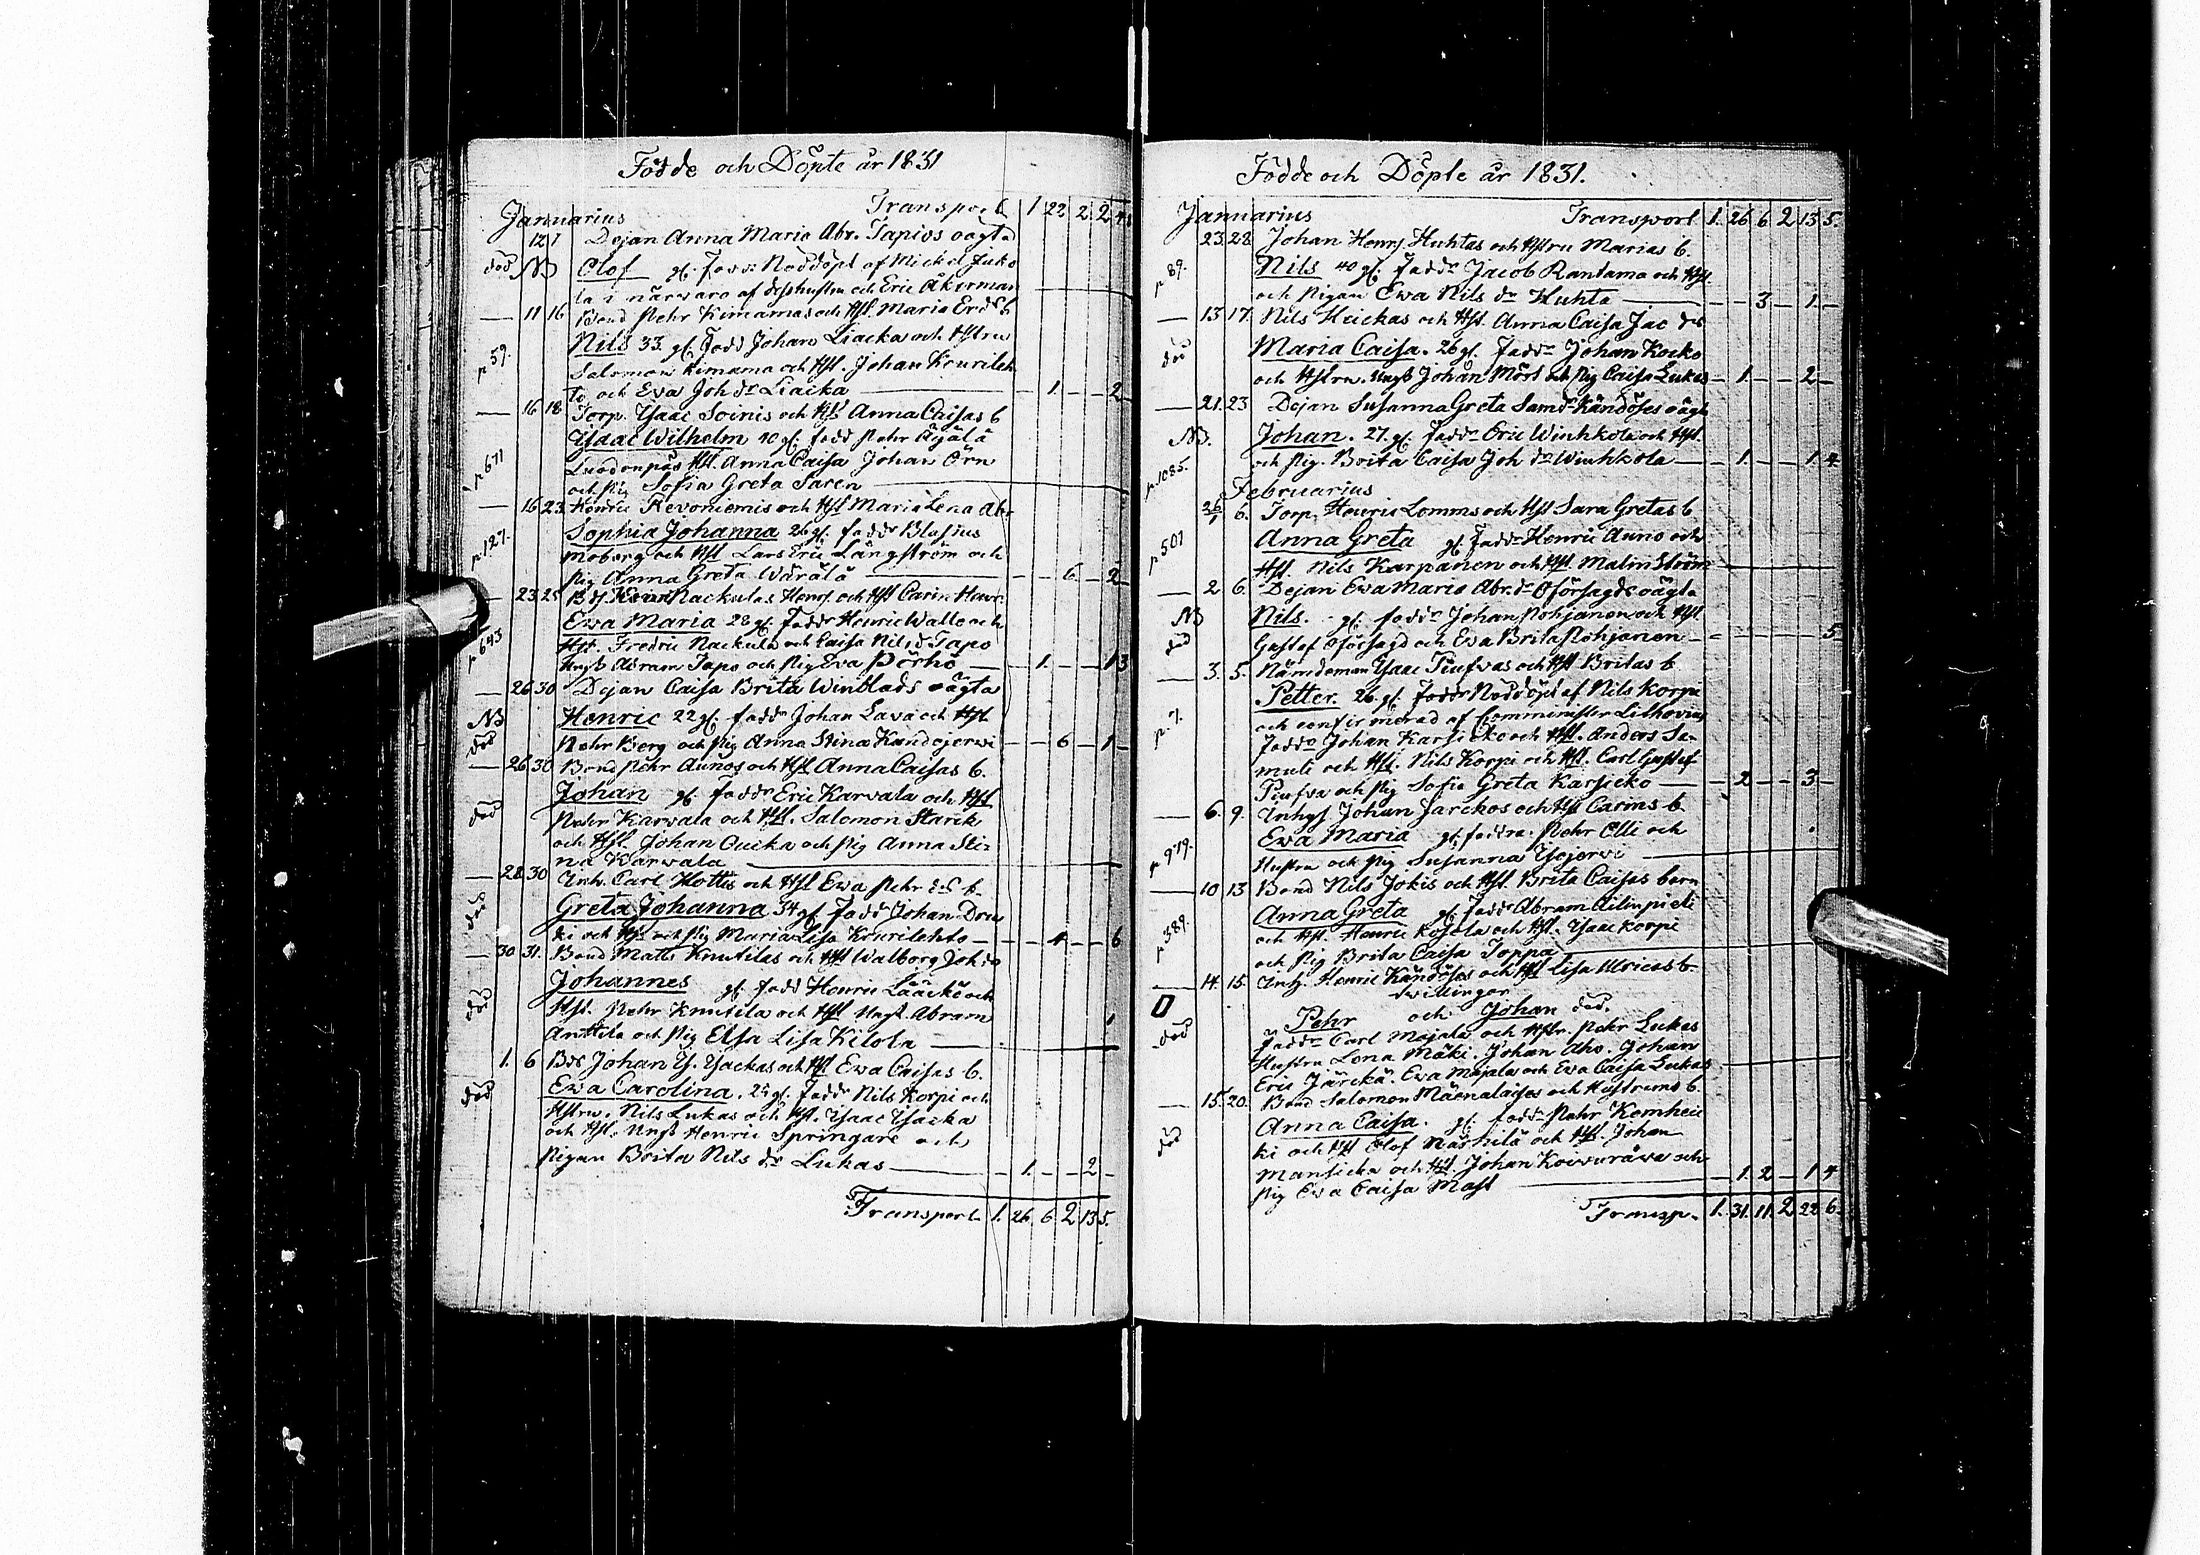 Födde och Döpte år 1831
Januarius Transport 1 22 2 2
12 7 Dejan Anna Maria Abr. Tapios oägta
död NB Olof gl. Nöddöpt af Mickel
la i närwaro af och Eric Åkerman
11 16 Bond Pehr Kimamas och Hst. Maria
p 59. Nils 33 gl. fadd Johan Liacka och Hstru
Salomon Kimama och Hst. Johan Kourileh
to, och Eva Joh dr Liacka 1. 2
16 18 Torp. Ysaac Soinis och Hst Anna Caisas b
p 671 Ysaac Wilhelm 40 gl. fadd Pehr Äijälä
Hst. Anna Caisa Johan Örn
och Pig Sofia Greta Saren
16 23 Henric Revoniemis och Hst Maria Lena Abr
p 127. Sophia Johanna 26 gl. fadd Blasius
Moberg och Hst Lars Eric Långström och
Pig Anna Greta Wärälä 6 2
23 25 Nackulas Henr. och Hst Carin
p 693 Ewa Maria 28 gl. fadd Henric Walle och
Hst. Fredric Nackula och Caisa Nils d Tapo
Yngl Abram Tapo och Pig Eva Pörhö 1. 1 3
26 30 Dejan Caisa Brita Winblads oägta
NB Henric 22 gl. fadd Johan Lava och Hst
död Pehr Berg och Pig Anna Stina Kandejerwi 6 1
26 30 Bond Pehr Aunos och Hst Anna Caisas b.
död Johan gl. fadd Eric Karwala och Hst
Pehr Karwala och Hst. Salomon Starck
och Hst. Johan Oucka och Pig Anna Sti-
na Karwala
28 30 Inh. Carl Hottis och Hst Ewa Pehr ds b.
död Greta Johanna 34 gl. fadd Johan
ki och Hst och Pig Maria Lisa Kourilehto 4 6
30 31. Bond Matts Knutilas och Hst Walborg Joh ds
död Johannes gl. fadd Henric Lääckö och
Hst. Pehr Knutila och Hst Yngl. Abram
Anttila och Pig Elsa Lisa Kilola
1. 6 Bds Johan Y. Yackas och Hst Ewa Caisas b.
död Ewa Carolina. 25 gl. fadd Nils Korpi och
Hstru. Nils Lukas och Hst. Ysaac Ysacka
och Hst. Yngl Henric Springare och
Pigan Brita Nils dr Lukas 1. 2
Transport 1. 26 6 2 13 5.
Födde och Döpte år 1831.
Januarius Transport 1. 26 6 2 13 5.
23. 28 Johan Henr. Huhtas och Hstru Marias b.
p 89. Nils 40 gl. fadd Jacob Randama och Hst
och Pigan Ewa Nils dr Huhta 3 1
13 17. Nils Huckas och Hst. Anna Caisa Jac ds
död Maria Caisa. 26 gl. fadd Johan Kocko
och Hstru. Yngl Johan Mört och Pig Caisa Lukas 1. 2
21. 23 Dejan Susanna Greta Sam dr Kändöses oägta
NB. Johan. 27. gl. fadd Eric Winhkola och Hst.
p 1085. och Pig. Brita Caisa Joh dr Winhkola 1. 1 4
Februarius
26/1 6. Torp. Henric Lomms och Hst Sara Gretas b
p 501 Anna Greta gl. fadd Henric Auno och
Hst. Nils Karpanen och Hst. Malin Ström
2 6. Dejan Ewa Maria Abr. dr Oförsagds oägta
NB Nils. gl. fadd Johan Pohjanen och Hst
död Gustaf Oförsagd och Ewa Brita Pohjanen 5
3. 5. Nämdeman Ysaac Piufvas och Hst Britas b.
p. 7. Petter. 26 gl. fadd Nöddöpt af Nils Korpi
och confirmerad af Comminister Lithovius
fadd Johan Karsicko och Hst. Anders Sa-
muli och Hst. Nils Korpi och Hst. Carl Gustaf
Piufva och Pig Sofia Greta Karsicko 2 3
6. 9. Inhys Johan Jarckos och Hst Carins b.
p 979. Ewa Maria gl. faddra: Pehr Olli och
Hustru och Pig Susanna Ysojerwi
10 13 Bond Nils Jokis och Hst. Brita Caisas barn
p 389. Anna Greta gl. fadd Abram Ailinpieti
och Hst. Henric Kosola och Hst. Ysaac Korpi
och Pig Brita Caisa Toppa
14. 15. Inhy. Henric Kändöses och Hst Lisa Ulricas b.
twillingar
död Pehr och Johan död.
fadd Carl Majala och Hstr. Pehr Lukas
Hustru Lena Mäki. Johan Aho. Johan
Eric Järckä. Ewa Majala och Ewa Caisa Lukas
15. 20. Bond Salomon Mäenalaises och Hustruns b.
död Anna Caisa. gl. fadd Pehr Kemhei
ki och Hst Olof Närhilä och Hst Johan
Mansicka och Hst. Johan Koivuräwa och
Pig Ewa Caisa Mast 1. 2 1 4
Transp. 1. 31. 11. 2 22 6